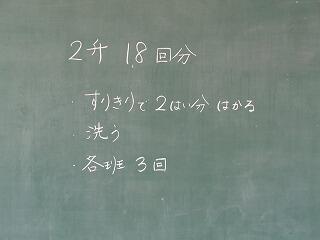 2升 18回分
・すりきりで2はい分はかる
・洗う
・各班 3回